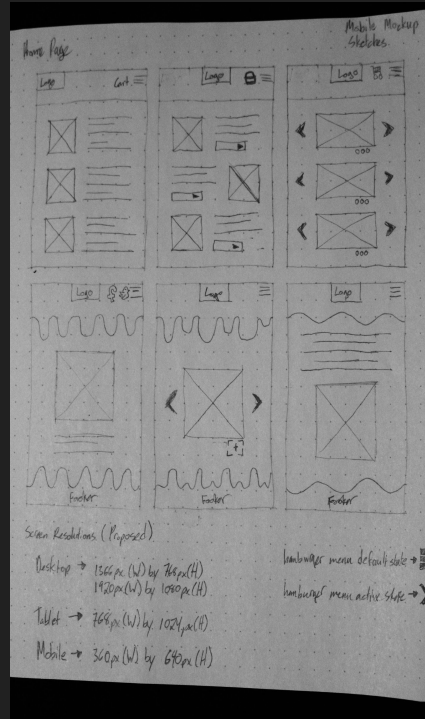 Mobile Mockup
Sketches.
Home Page
Logo Cart
Logo
Logo
Logo
Logo
Logo
Footer
Footer
Footer
Screen Resolutions (Proposed)
Desktop → 1366px (W) by 768px (H)
1920px (W) by 1080px (H)
Tablet → 768px (W) by 1024px (H)
Mobile → 360px (W) by 640px (H)
hamburger menu default state →
hamburger menu active state →